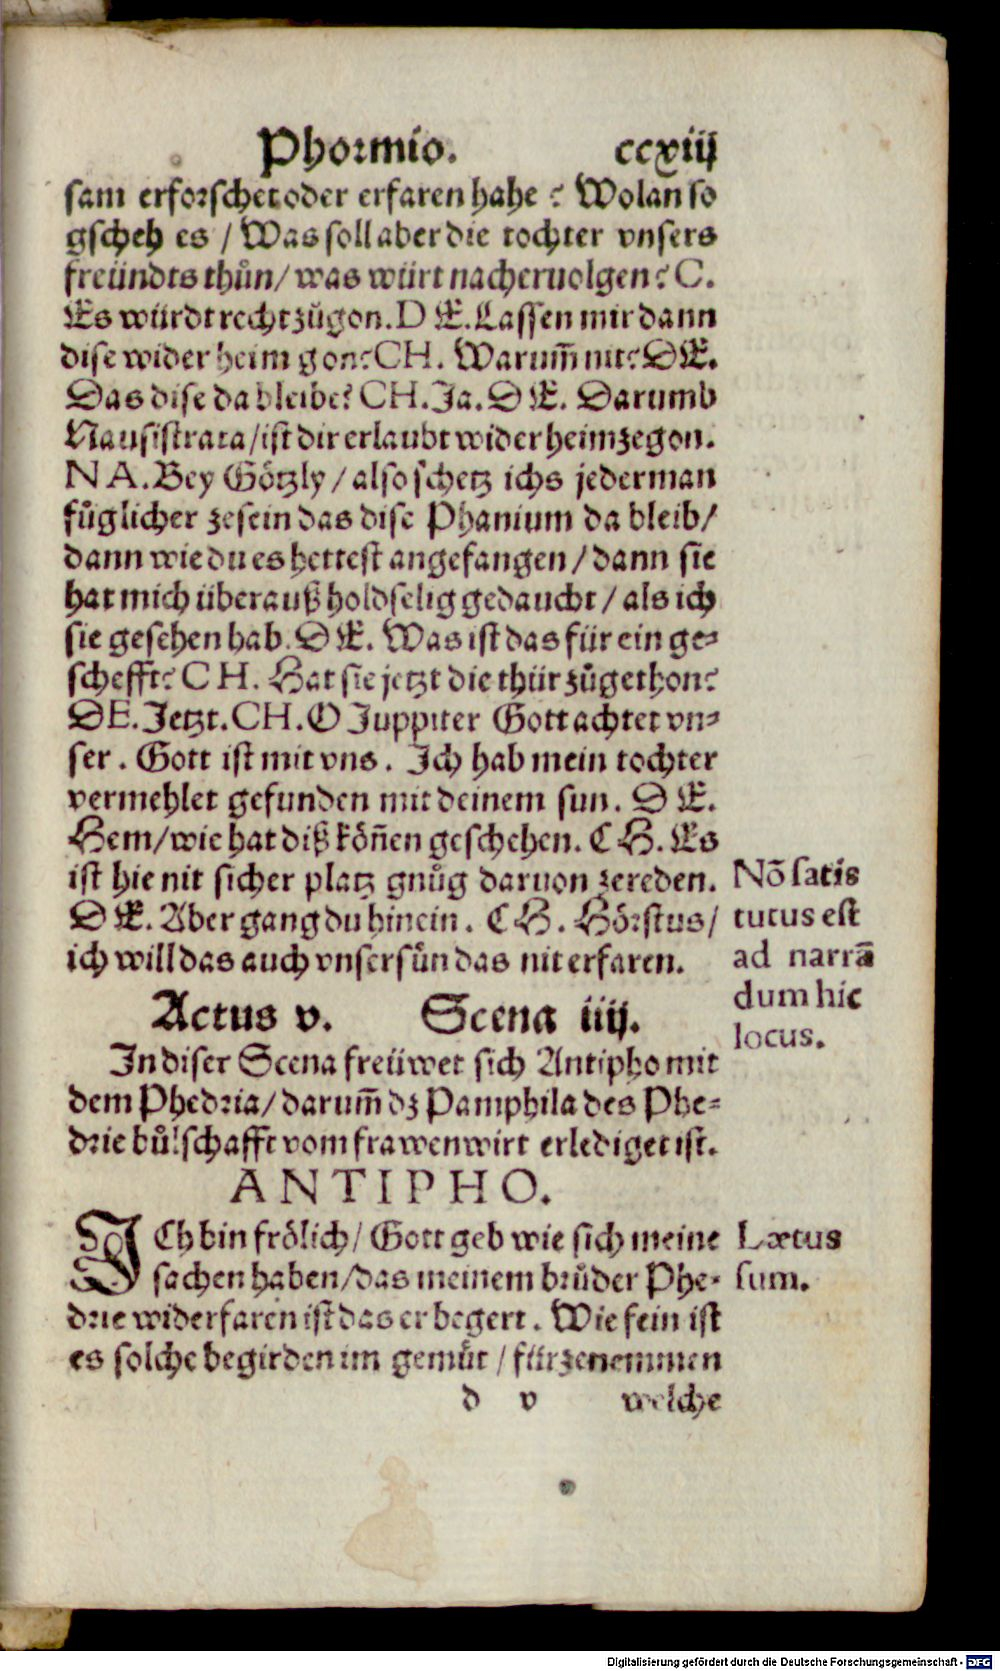 Phormio. ccxiij
sam erforschet oder erfaren hahe? Wolan so
gscheh es / Was soll aber die tochter vnsers
freündts thůn / was würt nacheruolgen? C.
Es würdt recht zůgon. DE. Lassen mir dann
dise wider heim gon? CH. Warum̃ nit? DE.
Das dise da bleibe? CH. Ja. DE. Darumb
Nausistrata / ist dir erlaubt wider heimzegon.
NA. Bey Götzly / also schetz ichs jederman
fůglicher zesein das dise Phanium da bleib /
dann wie du es hettest angefangen / dann sie
hat mich überauß holdselig gedaucht / als ich
sie gesehen hab. DE. Was ist das für ein ge⸗
schefft? CH. Hat sie jetzt die thür zůgethon?
DE. Jetzt. CH. O Juppiter Gott achtet vn⸗
ser. Gott ist mit vns. Ich hab mein tochter
vermehlet gefunden mit deinem sun. DE.
Hem / wie hat diß kön̄en geschehen. CH. Es
ist hie nit sicher platz gnůg daruon zereden.
DE. Aber gang du hinein. CH. Hörstus /
ich will das auch vnser sün das nit erfaren.
Nō satis
tutus est
ad narrā
dum hic
locus.
Actus v. Scena iiij.
In diser Scena freüwet sich Antipho mit
dem Phedria / darum̃ dz Pamphila des Phe⸗
drie bůlschafft vom frawenwirt erlediget ist.
ANTIPHO.
ICh bin frölich / Gott geb wie sich meine
sachen haben / das meinem brůder Phe⸗
drie widerfaren ist das er begert. Wie fein ist
es solche begirden im gemůt / für zenemmen
Lætus
sum.
d v welche
Digitalisierung gefördert durch die Deutsche Forschungsgemeinschaft - DFG